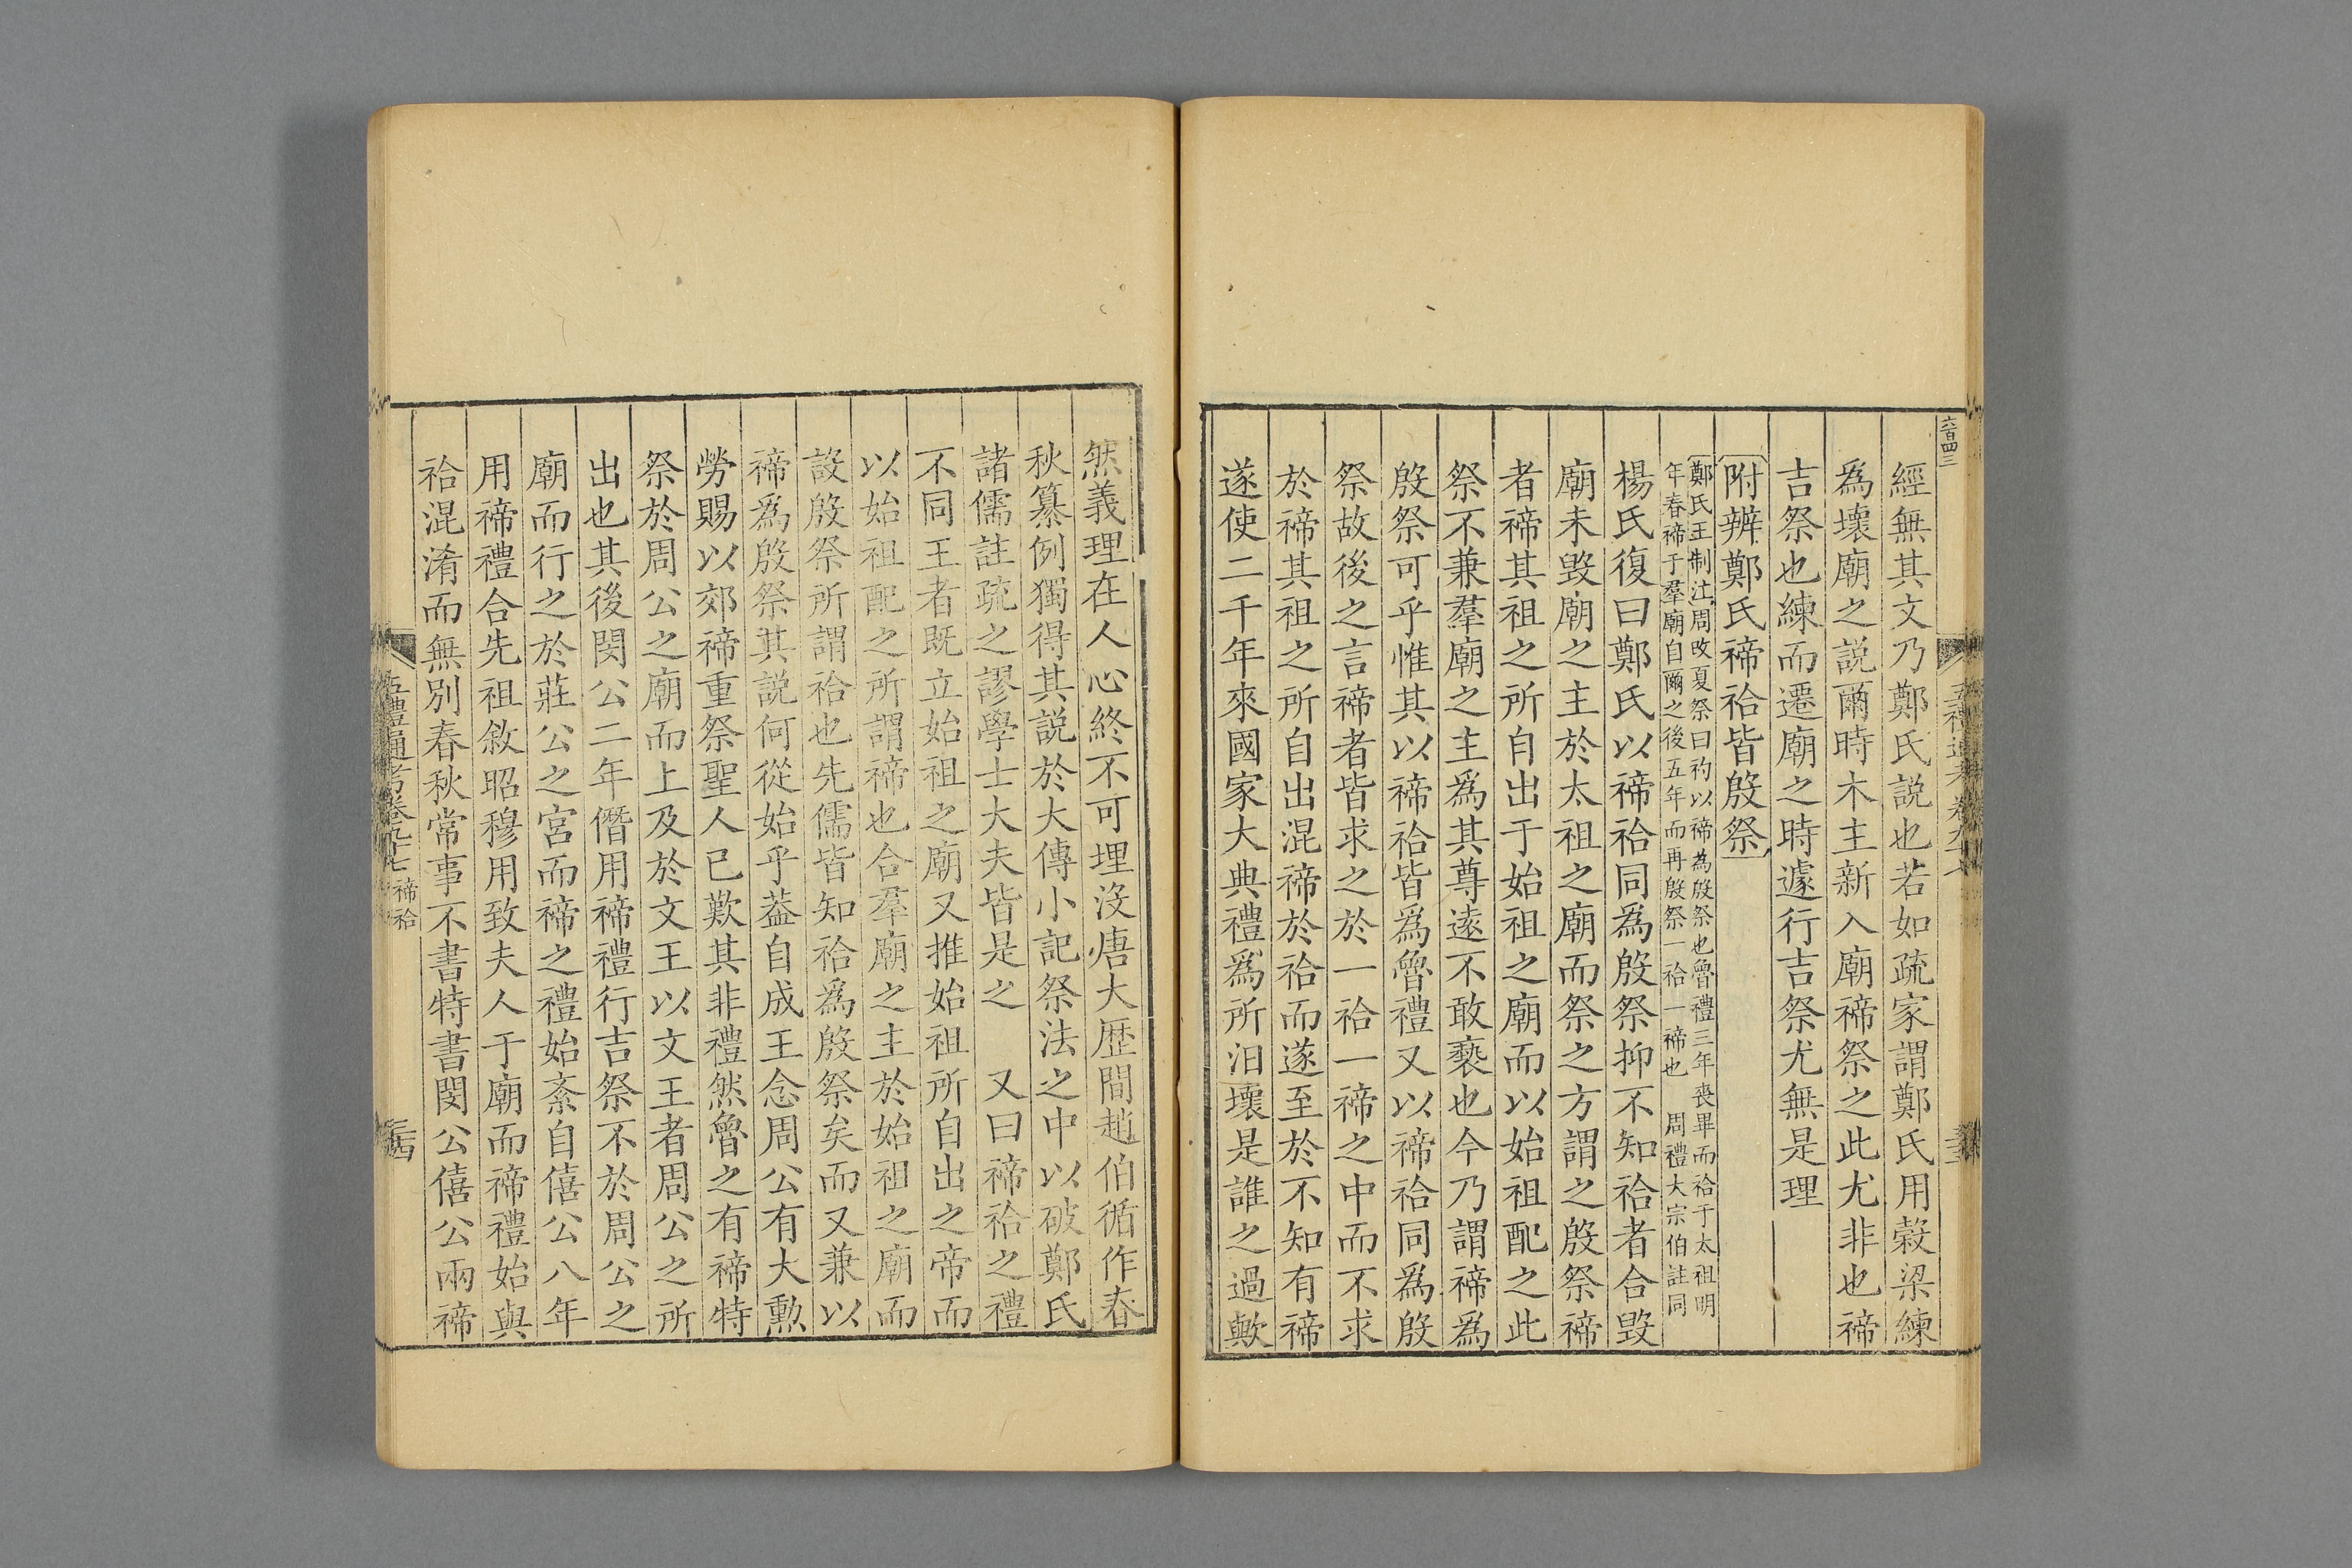 六百四三
經無其文乃鄭氏説也若如疏家謂鄭氏用榖梁練
爲壞廟之説爾時木主新入廟禘祭之此尤非也禘
吉祭也練而遷廟之時遽行吉祭尤無是理
附辨鄭氏禘祫皆殷祭
鄭氏王制注周改夏祭曰礿以禘爲殷祭也魯禮三年喪畢而祫于太祖明
年春禘于羣廟自爾之後五年而再殷祭一祫一禘也 周禮大宗伯註同
楊氏復曰鄭氏以禘祫同爲殷祭抑不知祫者合毀
廟未毀廟之主於太祖之廟而祭之方謂之殷祭禘
者禘其祖之所自出于始祖之廟而以始祖配之此
祭不兼羣廟之主爲其尊逺不敢䙝也今乃謂禘爲
殷祭可乎惟其以禘祫皆爲魯禮又以禘祫同爲殷
祭故後之言禘者皆求之於一祫一禘之中而不求
於禘其祖之所自出混禘於祫而遂至於不知有禘
遂使二千年來國家大典禮爲所汨壞是誰之過歟
然義理在人心終不可埋没唐大歴間趙伯循作春
秋纂例獨得其説於大傳小記祭法之中以破鄭氏
諸儒註疏之謬學士大夫皆是之 又曰禘祫之禮
不同王者既立始祖之廟又推始祖所自出之帝而
以始祖配之所謂禘也合羣廟之主於始祖之廟而
設殷祭所謂祫也先儒皆知祫爲殷祭矣而又兼以
禘爲殷祭其説何從始乎葢自成王念周公有大勲
勞賜以郊禘重祭聖人已歎其非禮然魯之有禘特
祭於周公之廟而上及於文王以文王者周公之所
出也其後閔公二年僭用禘禮行吉祭不於周公之
廟而行之於莊公之宮而禘之禮始紊自僖公八年
用禘禮合先祖敘昭穆用致夫人于廟而禘禮始與
祫混淆而無別春秋常事不書特書閔公僖公兩禘
五禮通考卷九十七 禘祫